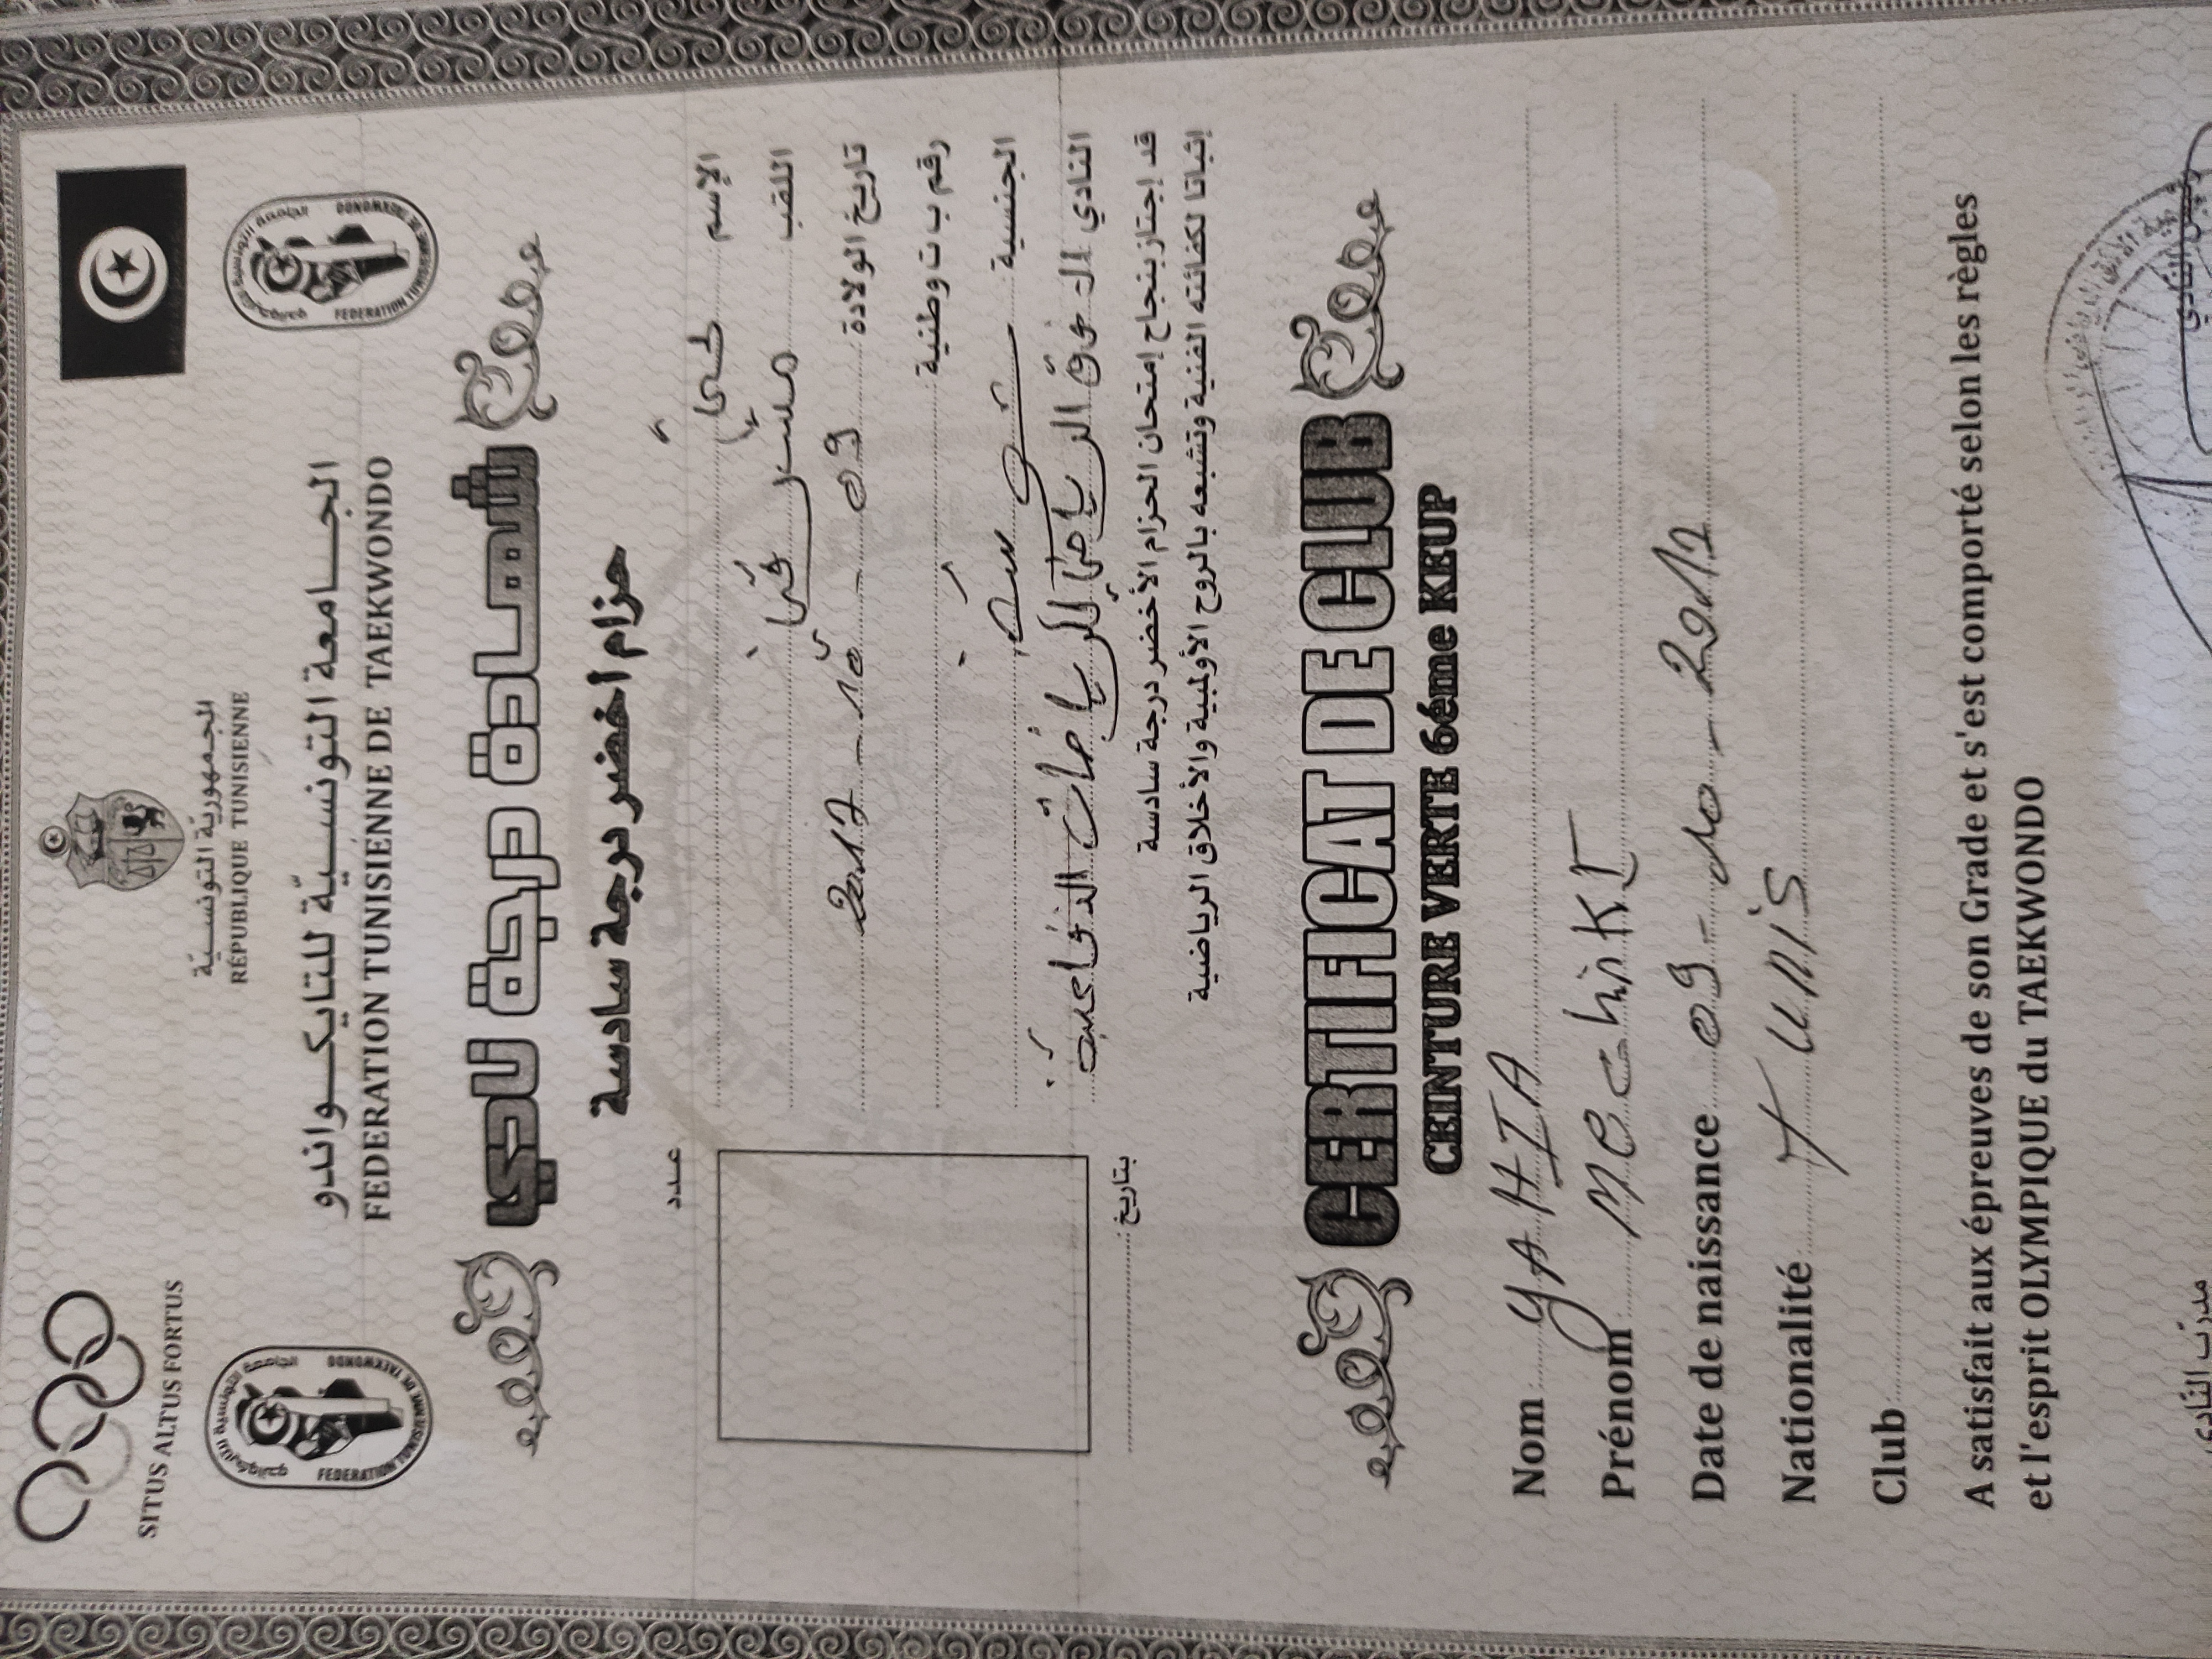 SITUS ALTUS FORTUS
الجمهورية التونسية
RÉPUBLIQUE TUNISIENNE
الجامعة التونسية للتايكواندو
FEDERATION TUNISIENNE DE TAEKWONDO
شهادة درجة نادي
حزام أخضر درجة سادسة
عدد
الإسم يحي
اللقب
تاريخ الولادة 09 - 10 - 2017
رقم ب ت وطنية
الجنسية تونسية
النادي الرياضي للرياضات الدفاعية
بتاريخ
قد إجتاز بنجاح إمتحان الحزام الأخضر درجة سادسة
إثباتا لكفائته الفنية وتشبعه بالروح الأولمبية والأخلاق الرياضية
CERTIFICAT DE CLUB
CEINTURE VERTE 6éme KEUP
Nom YAHIA
Prénom MEChiKI
Date de naissance 09 - 10 - 2017
Nationalité TUNIS
Club
A satisfait aux épreuves de son Grade et s'est comporté selon les règles
et l'esprit OLYMPIQUE du TAEKWONDO
مدرّب النّادي
رئيس النّادي